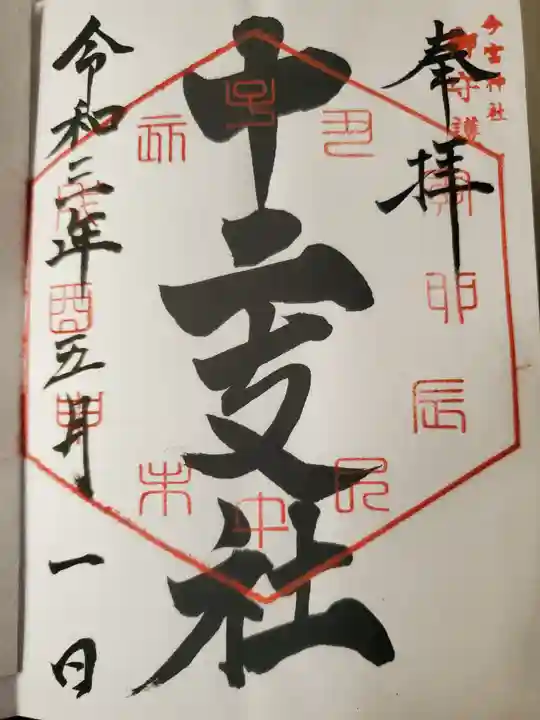 今宮神社
御守護
奉拝
十二支社
令和三年五月一日
子
丑
寅
卯
辰
巳
午
未
申
酉
戌
亥